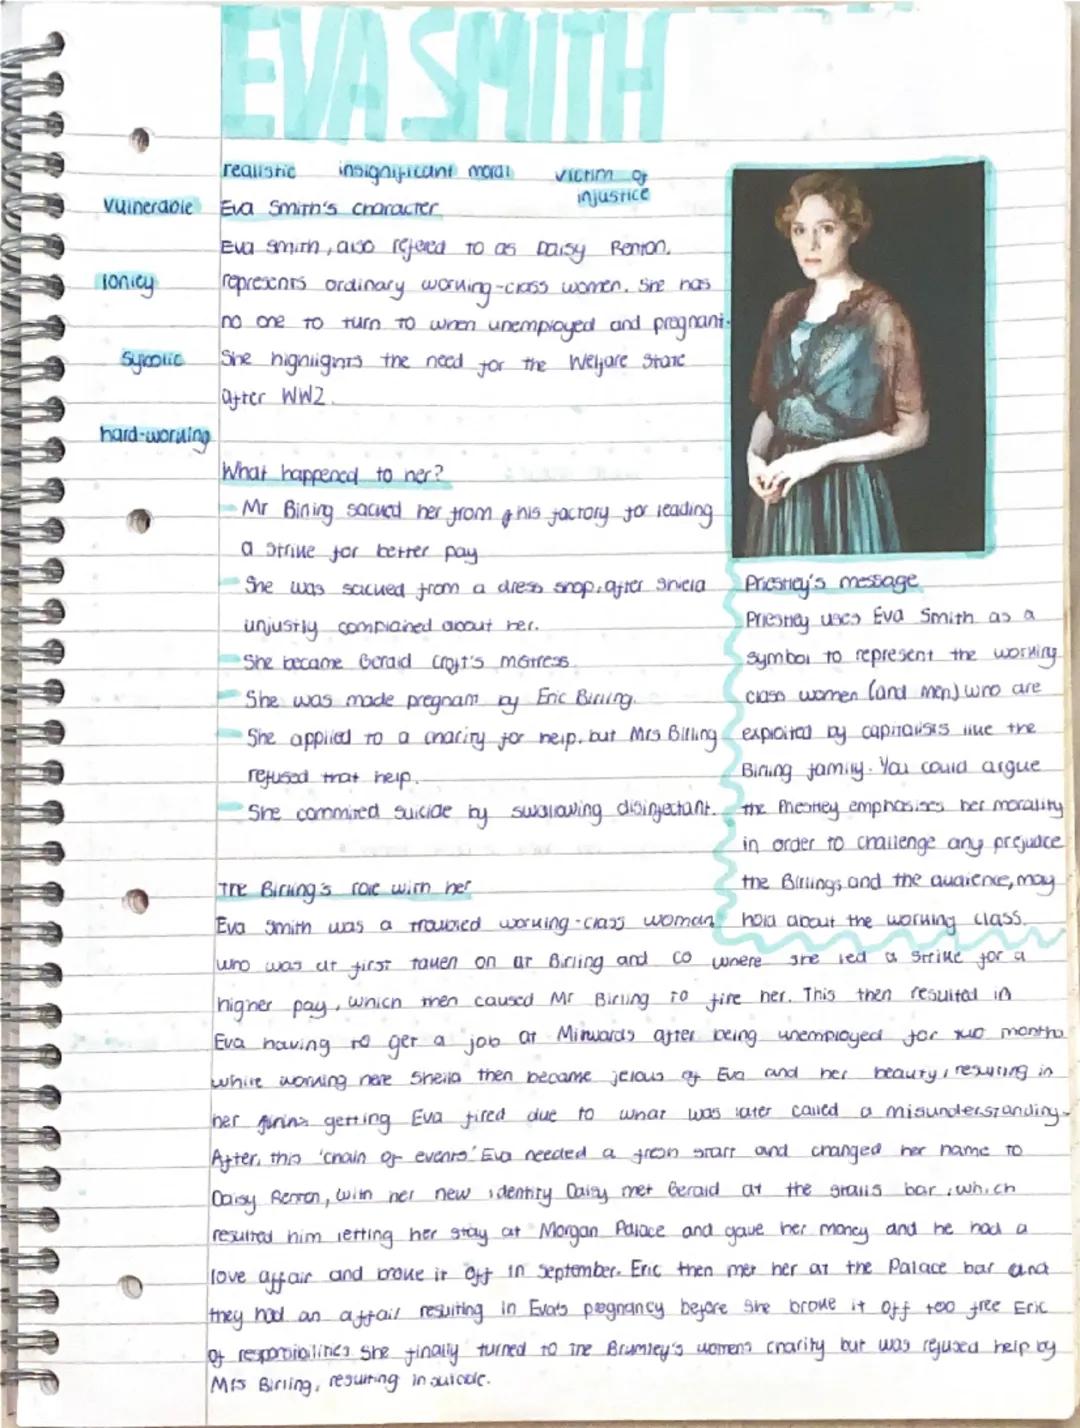 EVA SMITH
realistic insignificant moral victim of
injustice
vulnerable Eva Smith's character
Eva Smith, also refered to as Daisy Renton,
lonley represents ordinary working-class women. She has
no one to turn to when unemployed and pregnant.
Sybolic She highlights the need for the Welfare State
after WW2.
hard-working
What happened to her?
- Mr Birling sacked her from his factory for leading
a strike for better pay
- She was sacked from a dress shop, after Sheila
unjustly complained about her.
- She became Gerald Croft's mistress.
- She was made pregnant by Eric Birling.
- She applied to a charity for help, but Mrs Birling
refused that help.
- She commited suicide by swallowing disinfectant.
Priestley's message
Priestley uses Eva Smith as a
symbol to represent the working
class women (and men) who are
exploited by capitalists like the
Birling family. You could argue
the Priestley emphasises her morality
in order to challenge any prejudice
the Birlings and the audience, may
hold about the working class.
The Birling's role with her
Eva Smith was a troubled working-class woman
who was at first taken on at Birling and co where she led a strike for a
higher pay, which then caused Mr Birling to fire her. This then resulted in
Eva having to get a job at Milwards after being unemployed for two months
while working here Sheila then became jelous of Eva and her beauty, resulting in
her getting Eva fired due to what was later called a misunderstanding.
After, this 'chain of events' Eva needed a fresh start and changed her name to
Daisy Renton, with her new identity Daisy met Gerald at the stalls bar, which
resulted him letting her stay at Morgan Palace and gave her money and he had a
love affair and broke it off in September. Eric then met her at the Palace bar and
they had an affair resulting in Eva's pregnancy before she broke it off too free Eric
of responsibilities. She finally turned to the Brumley's womens charity but was refused help by
Mrs Birling, resulting in suicide.